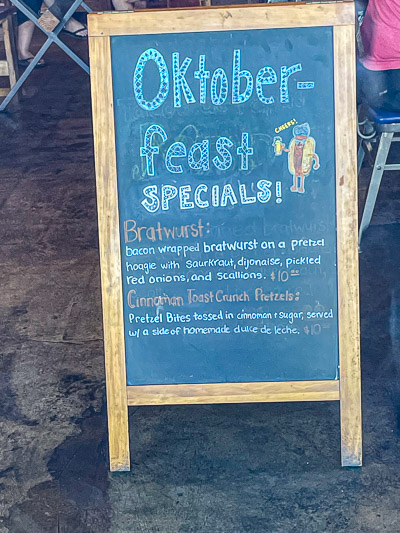 Oktober-
feast
CHEERS!
SPECIALS!
Bratwurst:
bacon wrapped bratwurst on a pretzel
hoagie with Saurkraut, dijonaise, pickled
red onions, and scallions. $10.00
Cinnoman Toast Crunch Pretzels:
Pretzel Bites tossed in cinnoman + sugar, served
w/ a side of homemade dulce de leche. $10.00